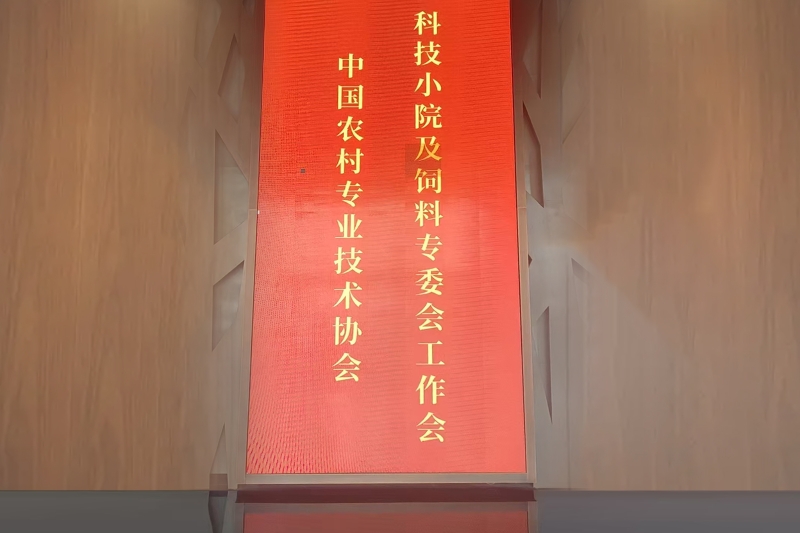 中国农村专业技术协会
科技小院及饲料专委会工作会